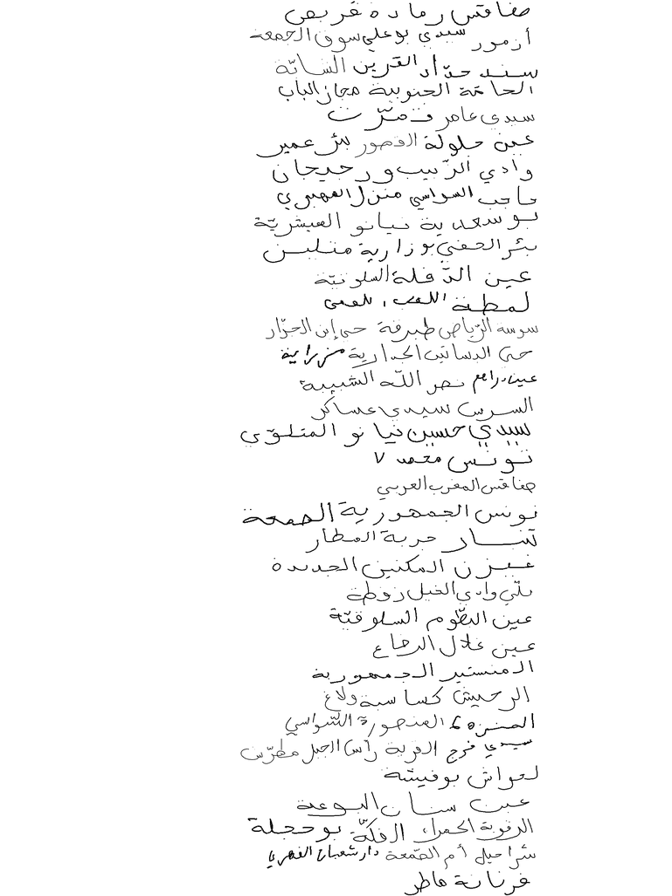 صفاقس رمادة غريص
أزمور سيدي بوعلي سوق الجمعة
سند حداد القرين الشابّة
الحامّة الجنوبية مجاز الباب
سيدي عامر قمّرت
عين جلولة القصور بئر عمير
وادي الزّبيب ورجيجان
حاجب السواسي منزل المهيري
بوسعدية نيانو العيثريّة
بئر الحفي بوزارية منلبس
عين الدّفلة السلوقيّة
لمطة
سوسه الرّياض طبرقة حي ابن الجزّار
حي البساتين الجدارية
عين دراهم نصر اللّه الشبيبة
السرس سيدي عساكر
سيدي حسين نيانو المتلوّي
تونس محمد ٧
صفاقس المغرب العربي
تونس الجمهورية الصمعة
تبار جربة المطار
غيزن المكنين الجديدة
بلّي وادي الخيل زوطة
عين البطّوم السلوقيّة
عين غلال الرضاع
المنستير الجمهورية
الرحيش كساسبة ولاغ
المنزه ٤ المنصورة التّواسي
سيدي فرج القرية رأس الجبل
لعواش بوفيشة
عين سنان البوعية
الرقوبة الحمراء الفكّة بوحجلة
شراحيل أم الصّمعة دار شعبان الفهري
فرنانة ماطر